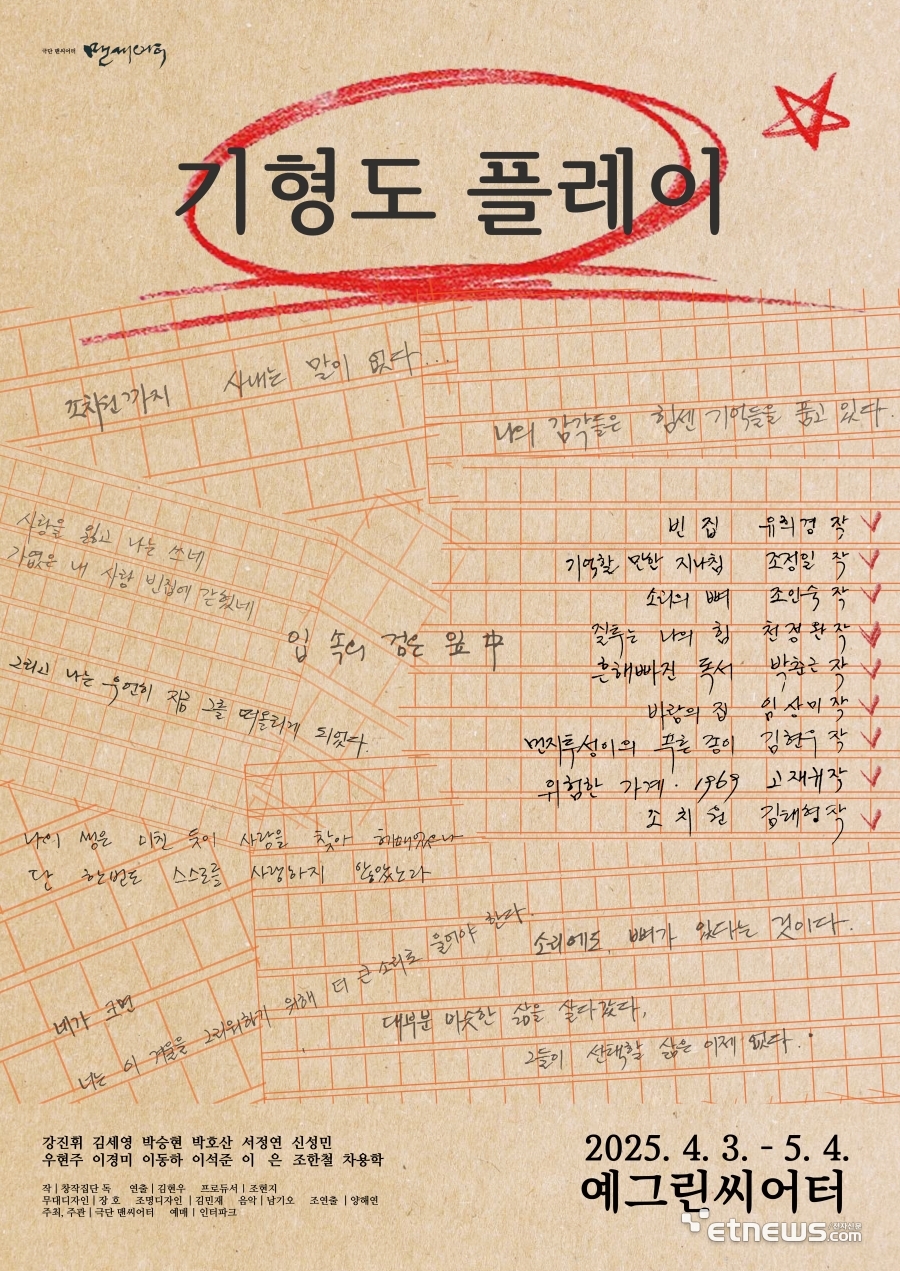 극단 맨씨어터 맨씨어터
기형도 플레이
조치원까지 사내는 말이 없다...
나의 감각들은 힘센 기억들을 품고 있다.
사랑을 잃고 나는 쓰네
가엾은 내 사랑 빈집에 갇혔네
빈 집 유희경 작
기억할 만한 지나침 조정일 작
소리의 뼈 조인숙 작
질투는 나의 힘 천정완 작
흔해빠진 독서 박춘근 작
바람의 집 임상미 작
먼지투성이의 푸른 종이 김현우 작
위험한 가계·1969 고재귀 작
조치원 김태형 작
입 속의 검은 잎 中
그리고 나는 우연히 지금 그를 떠올리게 되었다.
나의 생은 미친 듯이 사랑을 찾아 헤매었으나
단 한번도 스스로를 사랑하지 않았노라
소리에도 뼈가 있다는 것이다.
네가 크면
너는 이 겨울을 그리워하기 위해 더 큰 소리로 울어야 한다.
대부분 비슷한 삶을 살다갔다,
그들이 선택할 삶은 이제 없다..
강진휘 김세영 박승현 박호산 서정연 신성민
우현주 이경미 이동하 이석준 이 은 조한철 차용학
작 | 창작집단 독 연출 | 김현우 프로듀서 | 조현지
무대디자인 | 장 호 조명디자인 | 김민재 음악 | 남기오 조연출 | 양해연
주최, 주관 | 극단 맨씨어터 예매 | 인터파크
2025. 4. 3. - 5. 4.
예그린씨어터
etnews.com 전자신문